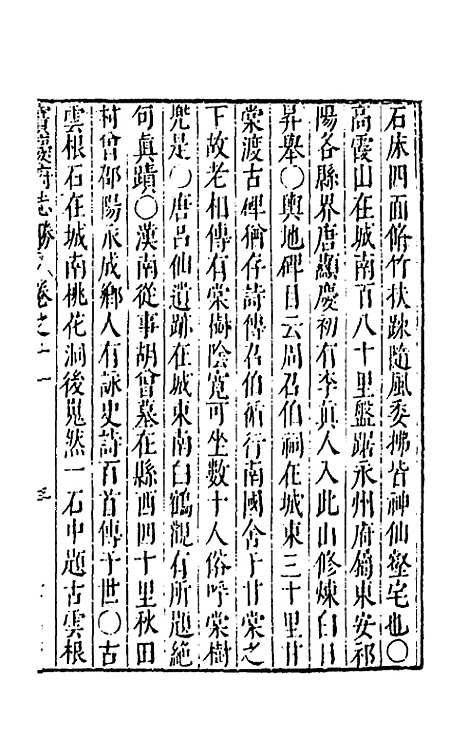 石床四面脩竹扶踈隨風委拂皆神仙壑宅也〇
高霞山在城南百八十里盤踞永州府偹東安祁
陽各縣界唐顯慶初有李真人入此山修煉白日
昇舉〇輿地碑目云周召伯祠在城東三十里甘
棠渡古碑猶存詩傳召伯循行南國舍于甘棠之
下故老相傳有棠樹陰寬可坐數十人俗呼棠樹
兜是〇唐呂仙遺跡在城東南白鶴觀有所題絕
句真蹟〇漢南從事胡曾墓在縣西四十里秋田
村曾邵陽永成鄉人有詠史詩百首傳于世〇古
雲根石在城南桃花洞後嵬然一石中題古雲根
寶慶府志勝 卷之十一 三